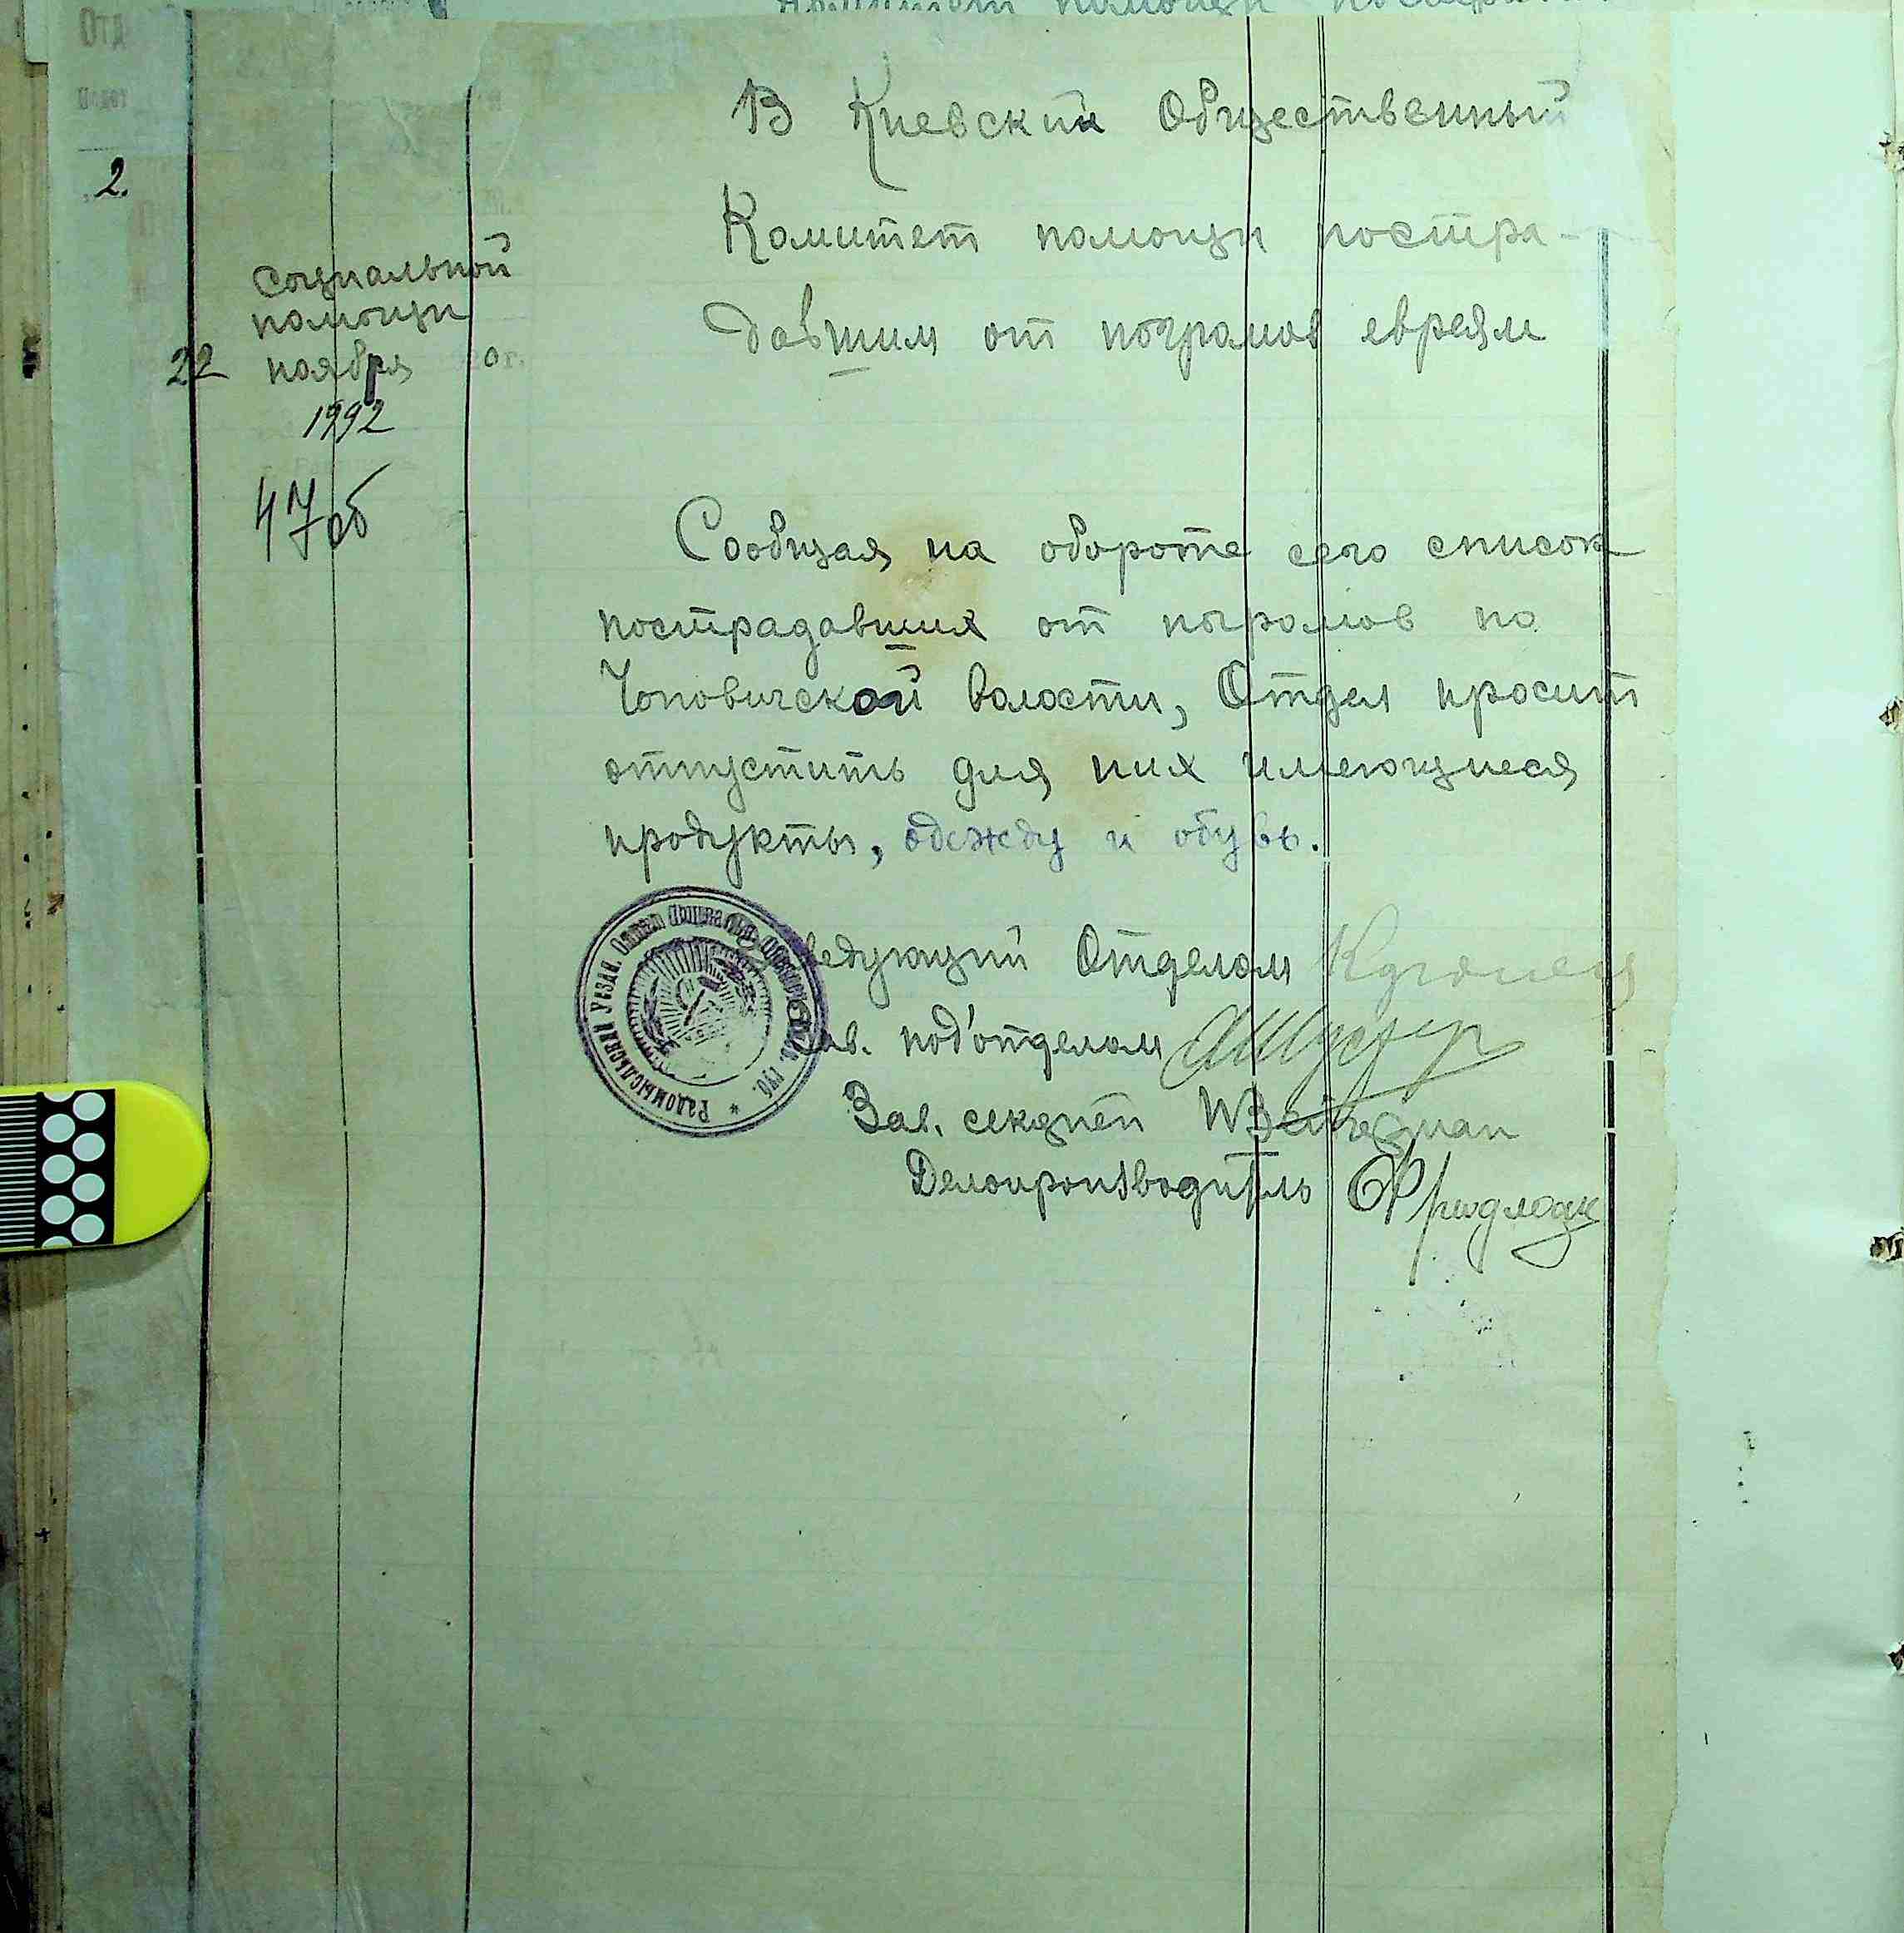 2.
социальной
помощи
22 ноября 0 г.
1992
47сб
В Киевский Общественный
Комитет помощи постра-
давшим от погромов евреям
Сообщая на обороте сего список
пострадавших от погромов по
Чоповичской волости, Отдел просит
отпустить для них имеющиеся
продукты, одежду и обувь.
Заведующий Отделом
Зав. под'отделом
Зав. секцией
Делопроизводитель
Радомысльский Уездн.